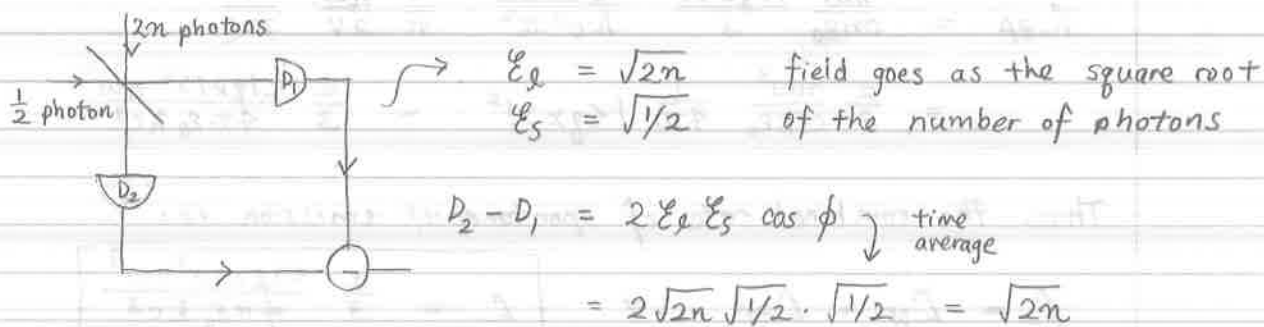 2n photons
1/2 photon
D₁
D₂
−
ℰₗ = √2n field goes as the square root
ℰₛ = √1/2 of the number of photons
D₂ − D₁ = 2 ℰₗ ℰₛ cos ϕ time
average
= 2 √2n √1/2 · √1/2 = √2n